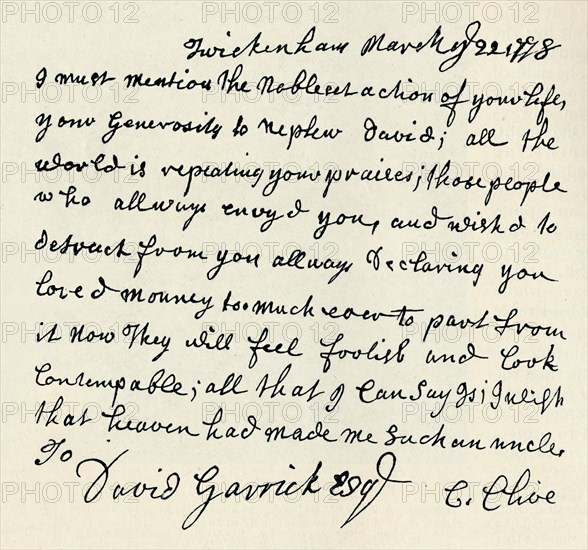 Twickenham March ye 22 1778
I must mention the Nobleset action of your life,
your Generosity to nephew David; all the
world is repeating your praices; those people
who allways envyd you, and wishd to
detract from you allways Declaring you
loved monney to much ever to part from
it now They will feel foolish and look
Contempable; all that I Can Say Is; I wish
that heaven had made me Such an uncle.
To
David Garrick Esqr
C. Clive